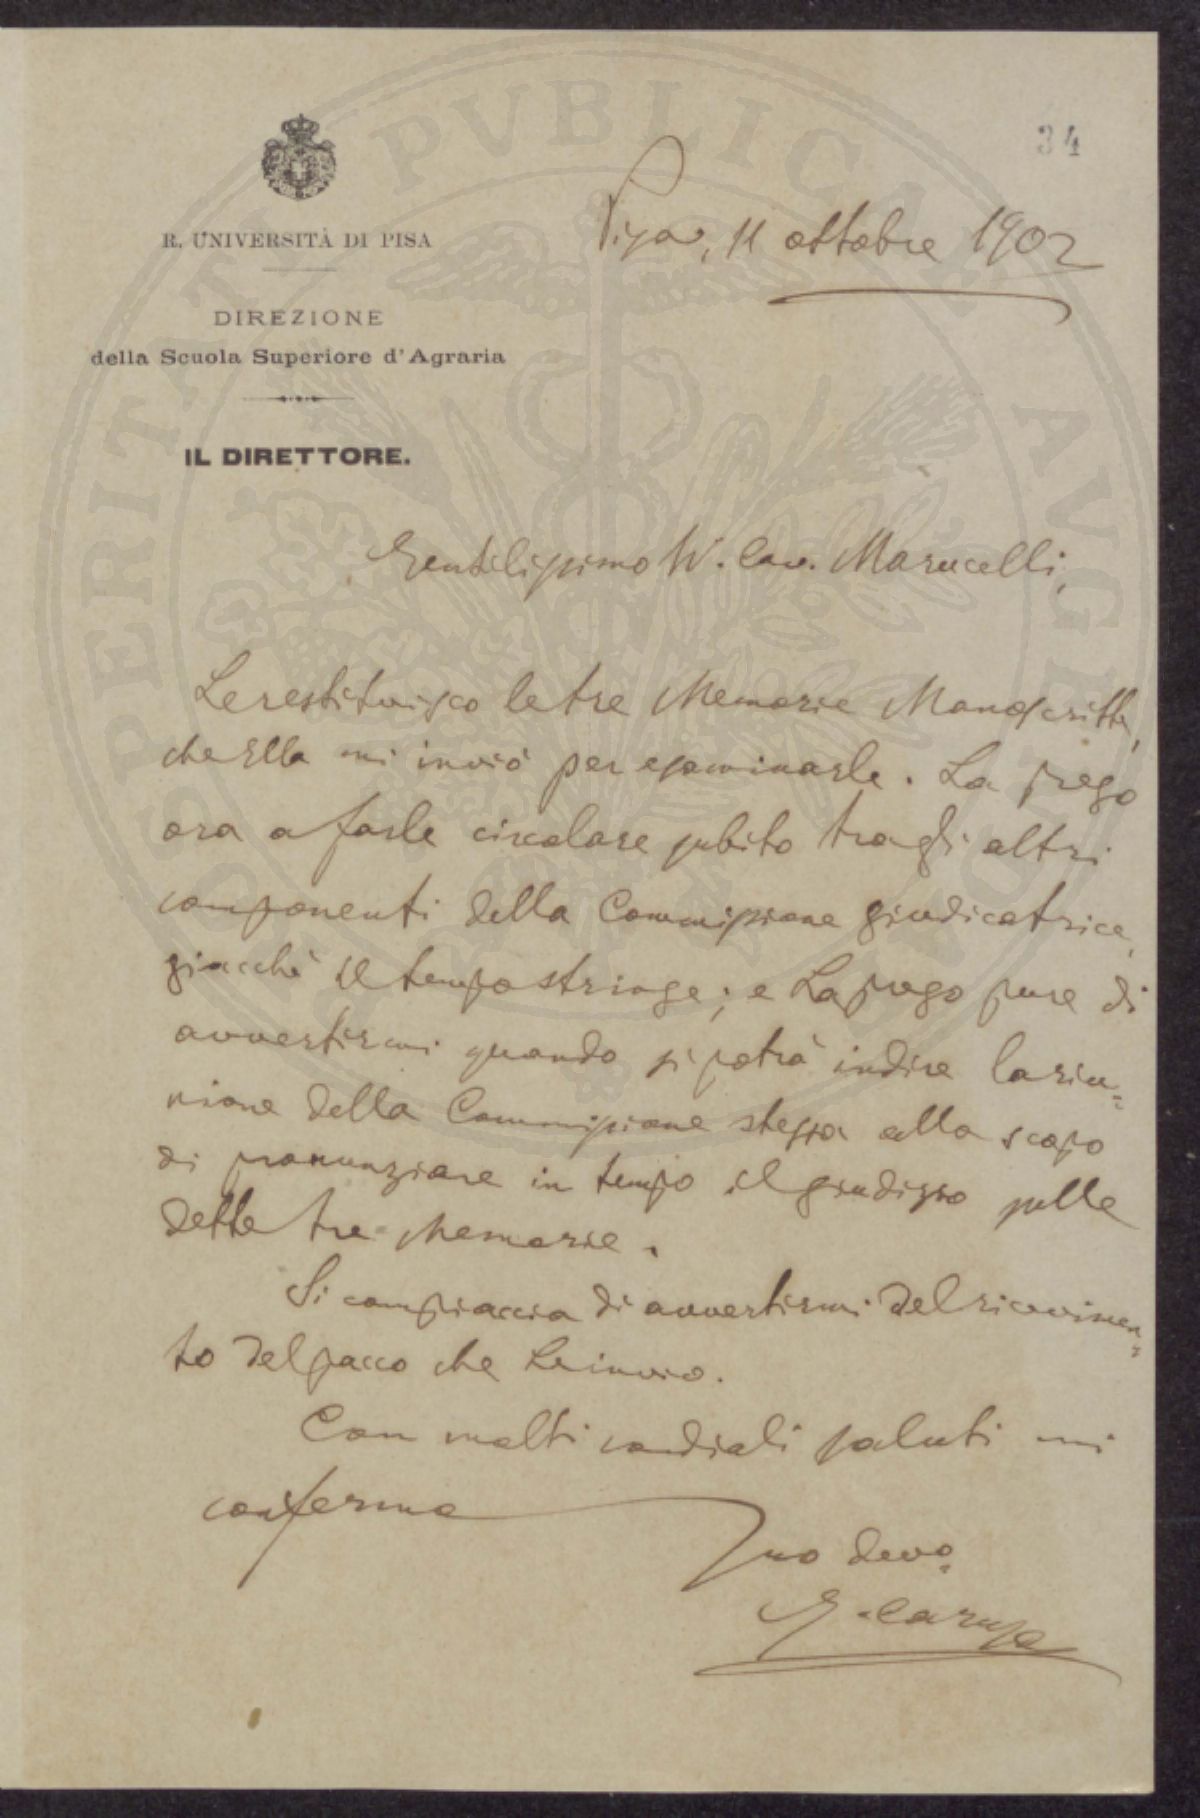 34
R. UNIVERSITÀ DI PISA
DIREZIONE
della Scuola Superiore d'Agraria
IL DIRETTORE.
Pisa, 11 ottobre 1902
Gentilissimo Cav. Marucelli,
Le restituisco le tre Memorie Manoscritte,
che Ella mi inviò per esaminarle. La prego
ora a farle circolare subito tra gli altri
componenti della Commissione giudicatrice,
giacchè il tempo stringe; e La prego pure di
avvertirmi quando si potrà indire la riu=
nione della Commissione stessa allo scopo
di pronunziare in tempo il giudizio sulle
dette tre Memorie.
Si compiaccia di avvertirmi del ricevimen=
to del pacco che Le invio.
Con molti cordiali saluti mi
confermo
Suo devo.
G. Caruso
PROSPERITATI PVBLICAE AVGENDAE